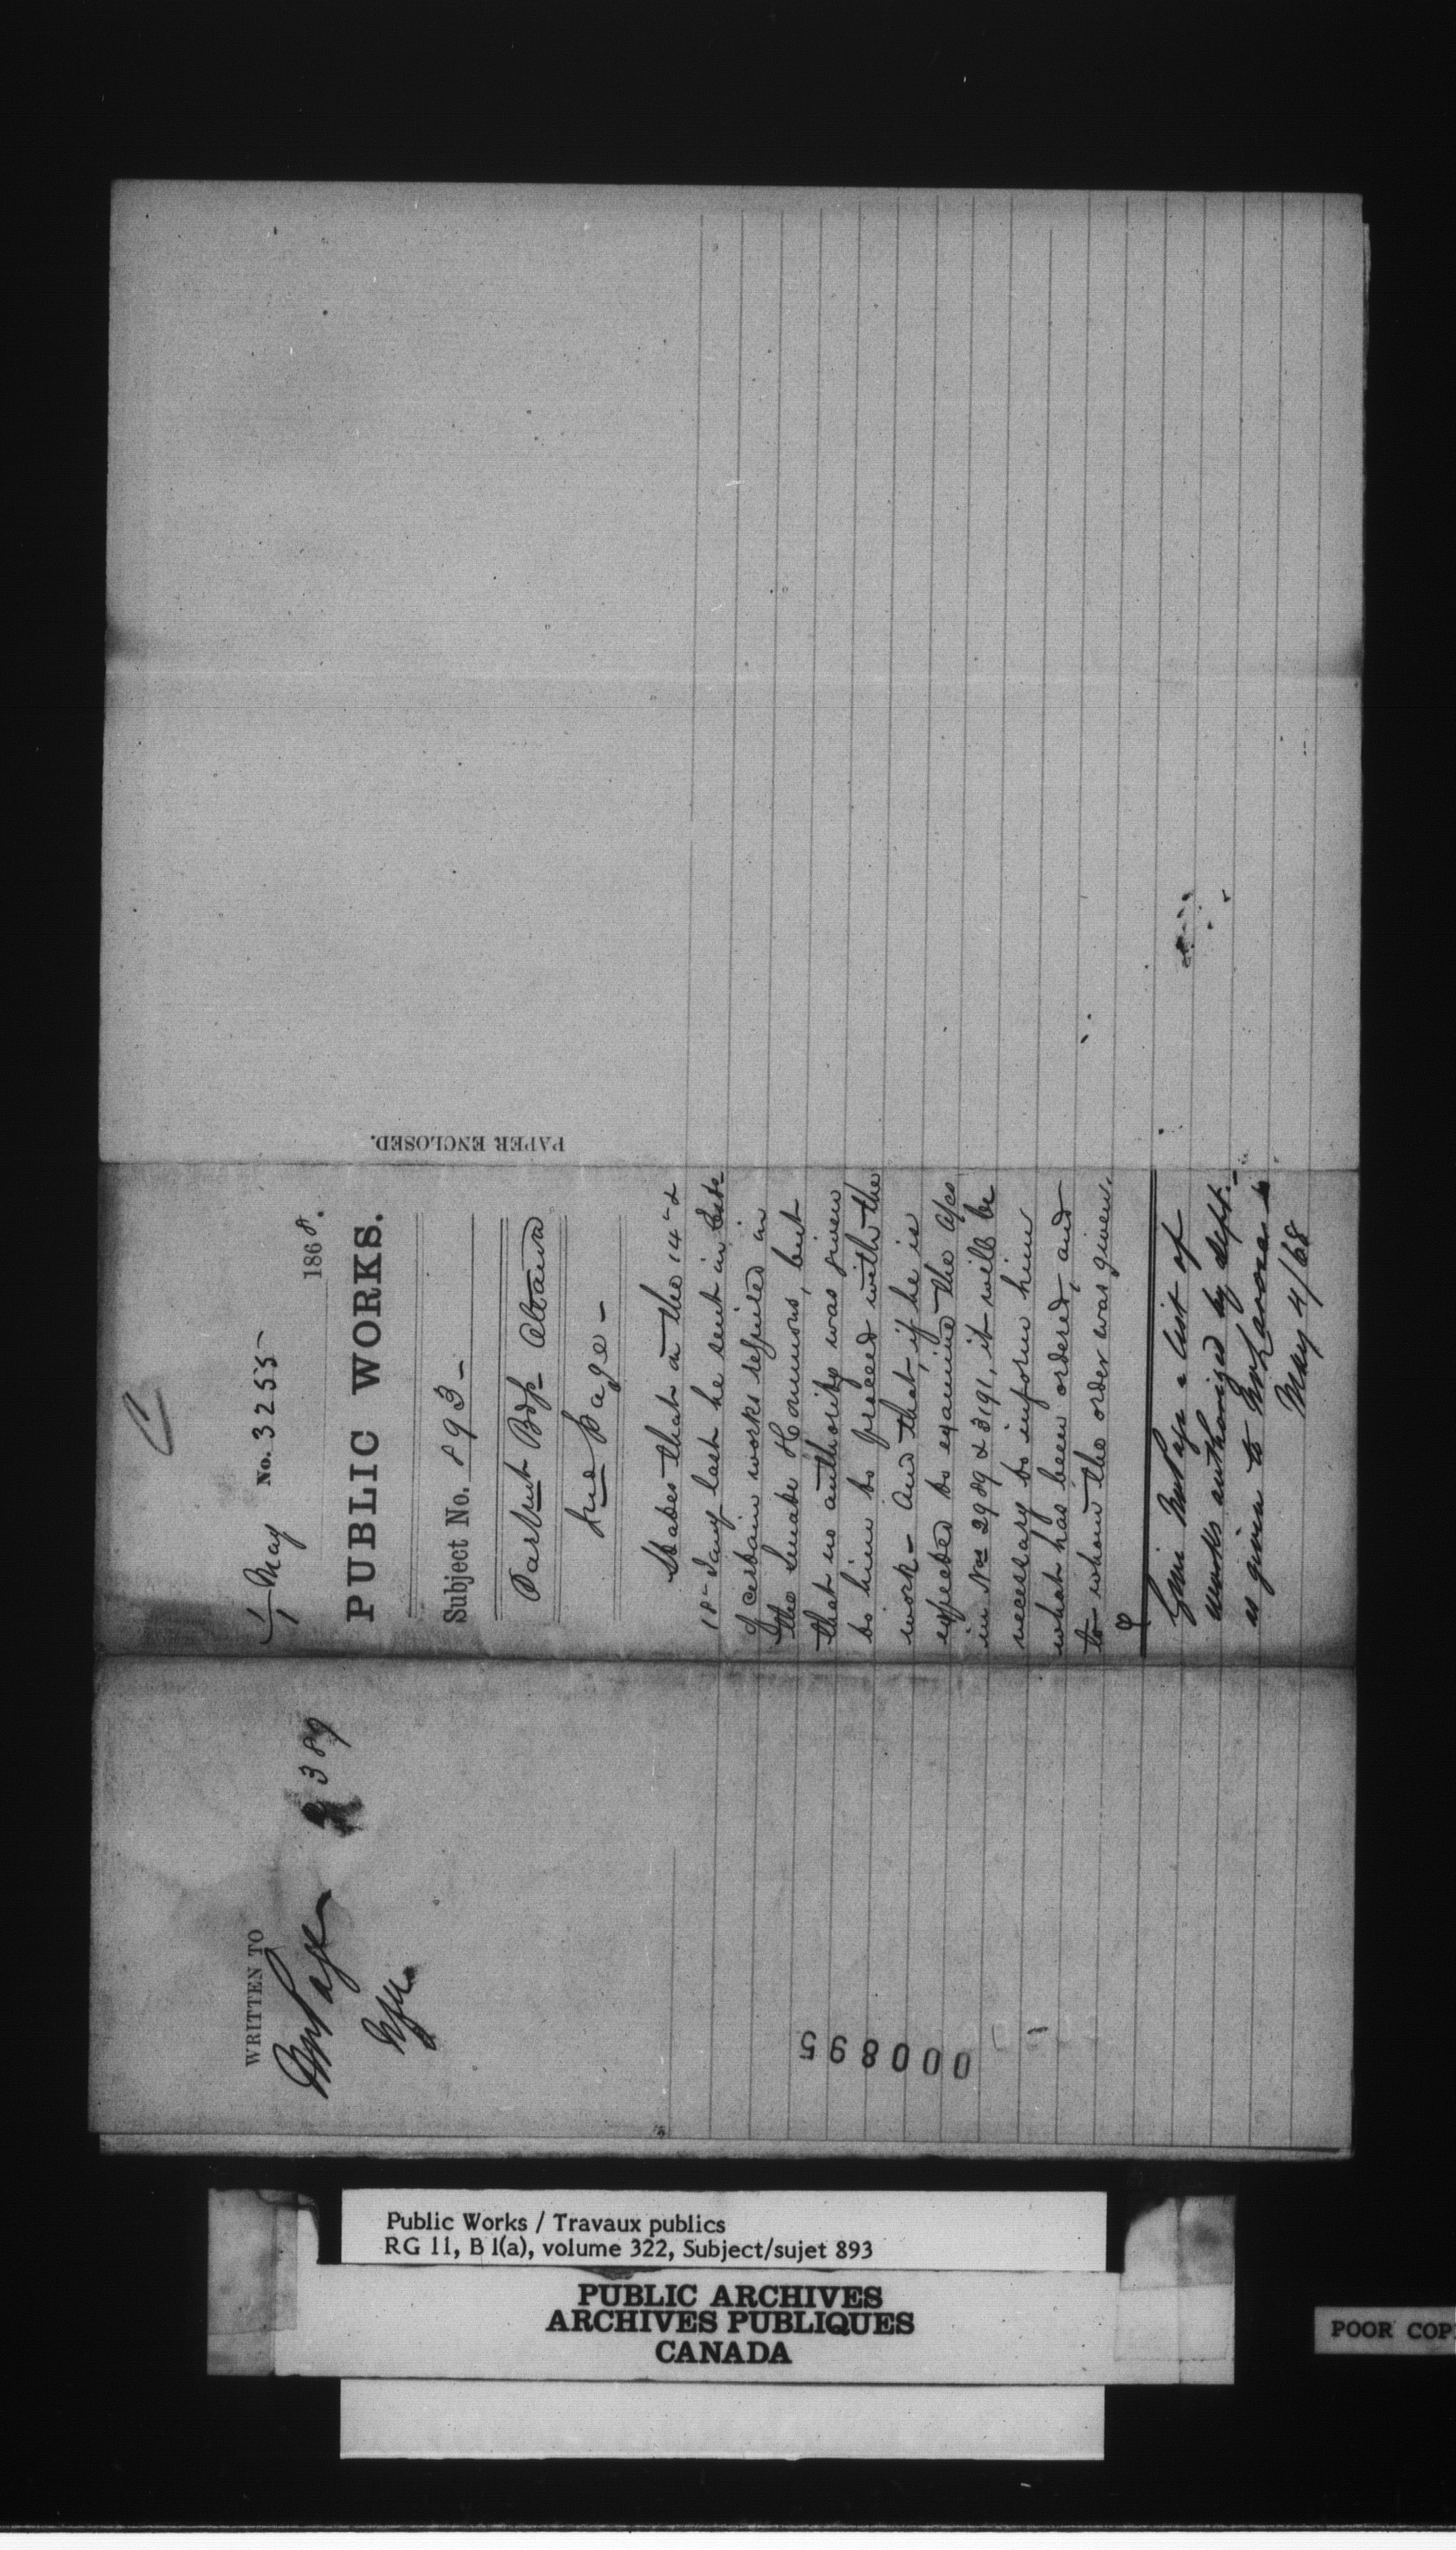 C
1/1 May No. 3255
1868.
PUBLIC WORKS.
Subject No. 893 –
Parlmt Bdgs Ottawa
Jno Page –
States that on the 14th &
18th Jany last he sent in Ests
of certain works required in
the Senate & Commons, but
that no authority was given
to him to proceed with the
work – and that, if he is
expected to examine the a/cs
in Nos 2989 & 3191, it will be
necessary to inform him
what has been ordered, and
to whom the order was given.
Give Mr Page a list of
works authorized by dept. –
as given to
May 4/68
PAPER ENCLOSED.
WRITTEN TO
Mr Page 2389
000895
Public Works / Travaux publics
RG 11, B 1(a), volume 322, Subject/sujet 893
PUBLIC ARCHIVES
ARCHIVES PUBLIQUES
CANADA
POOR COP